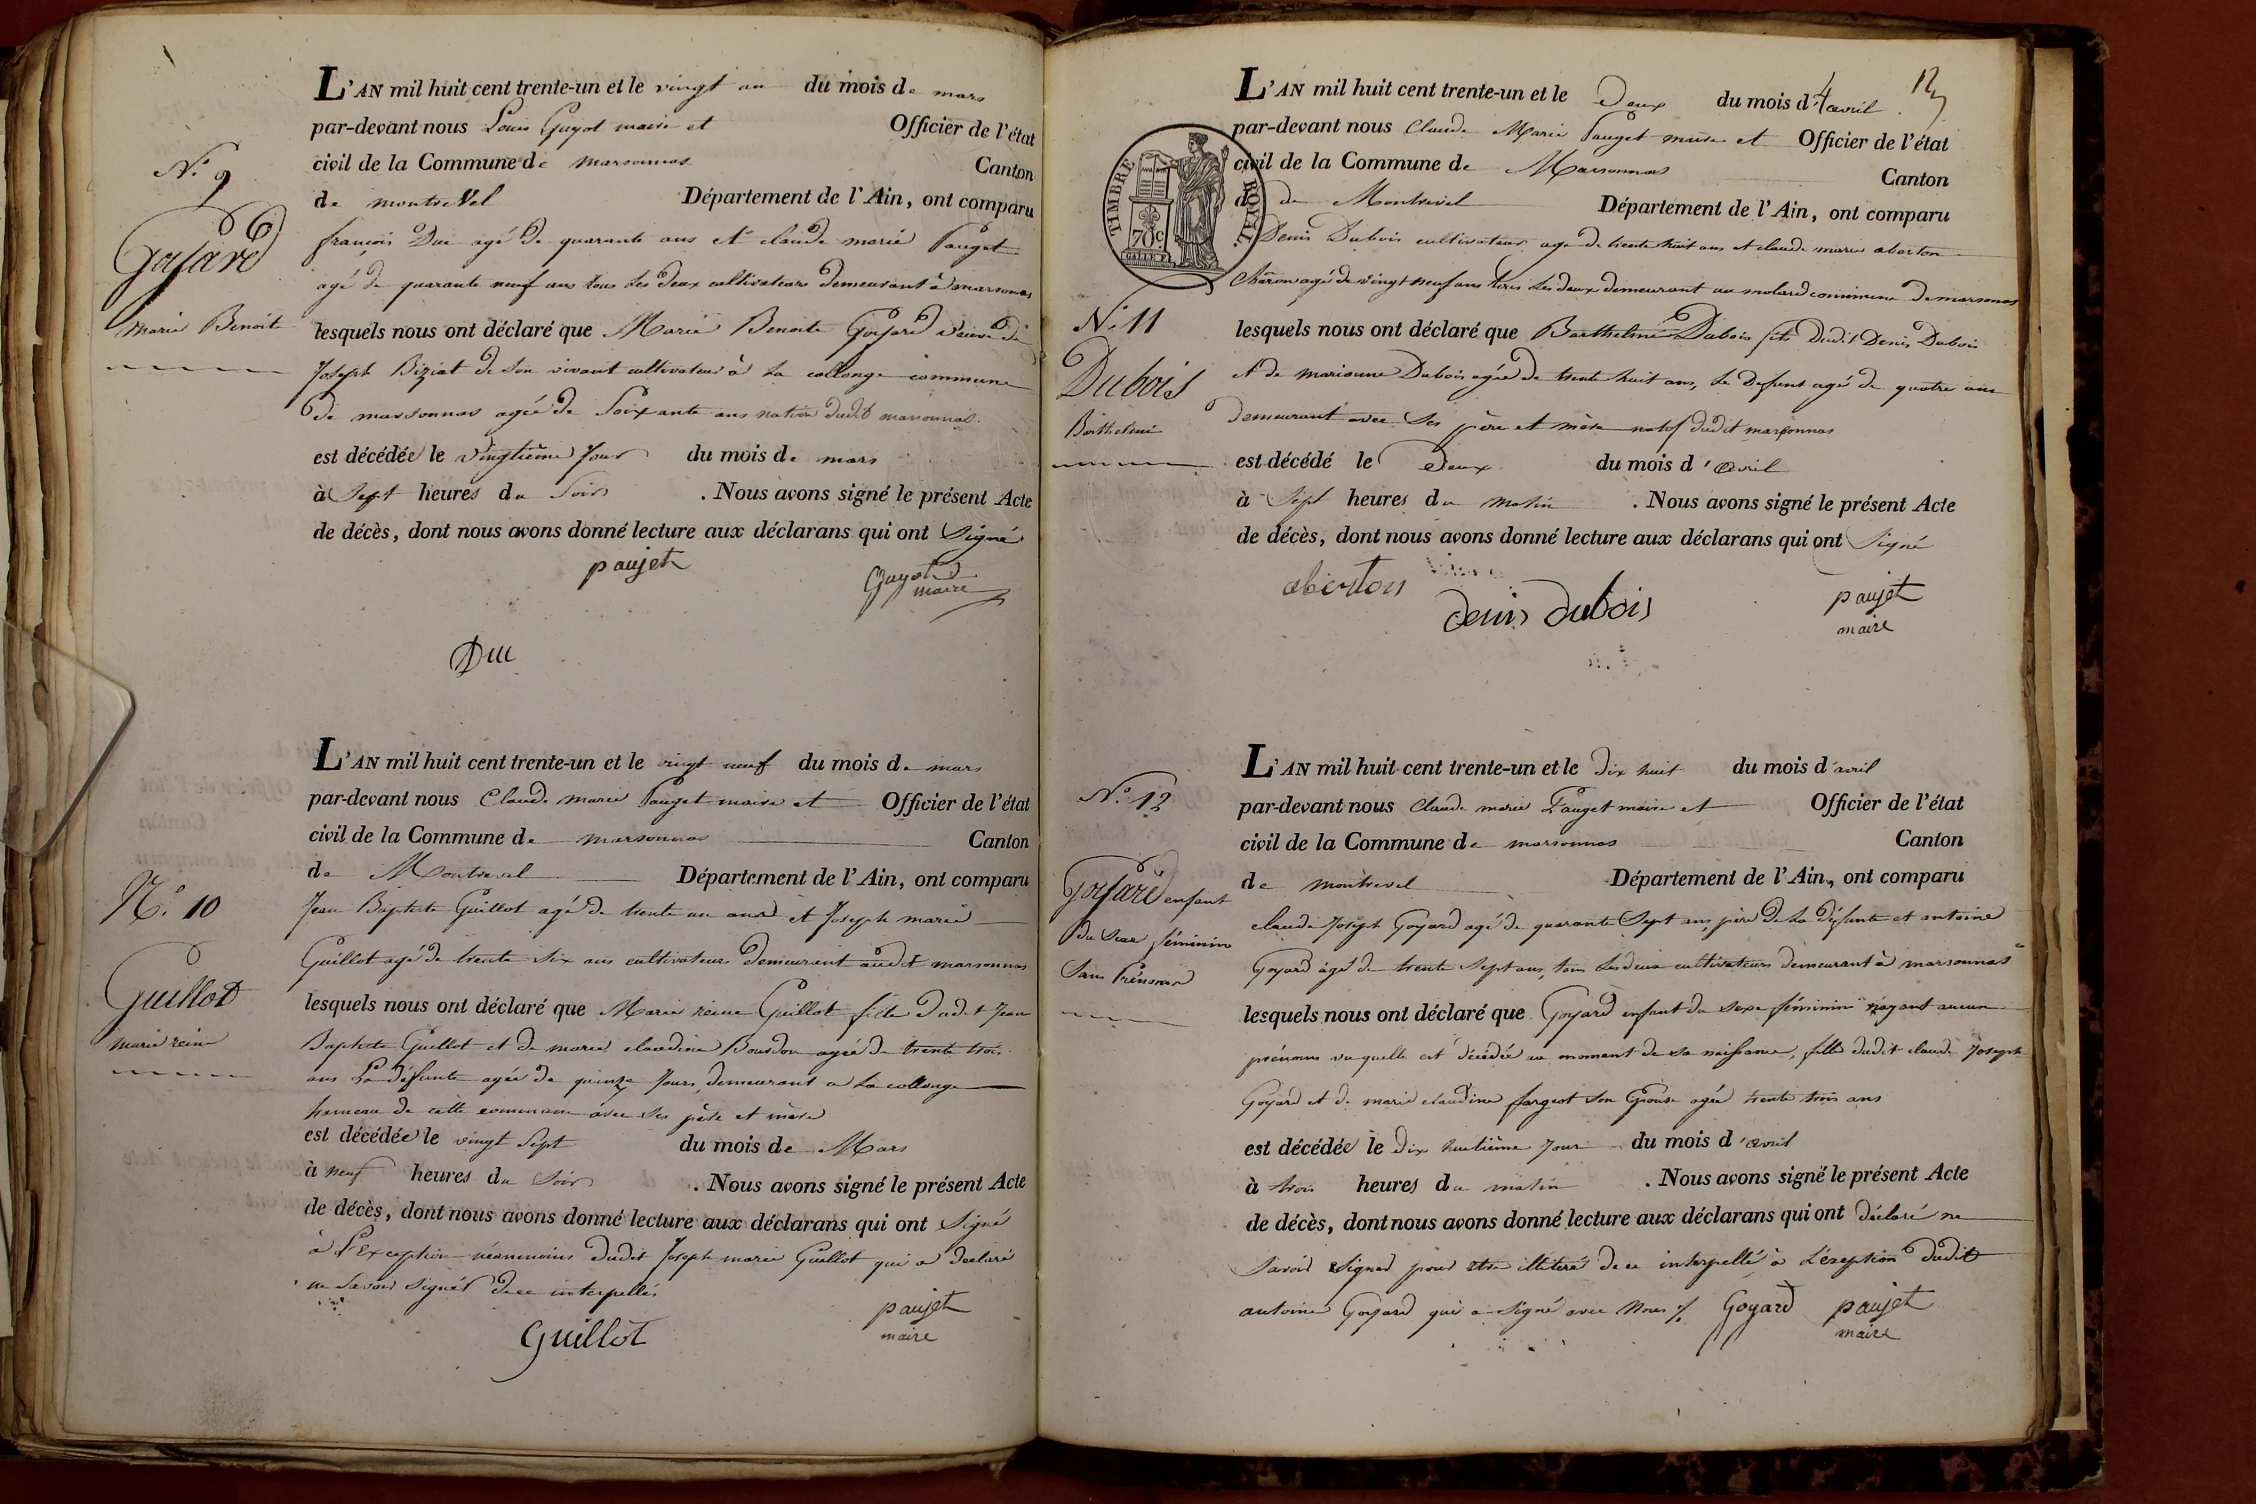 L'AN mil huit cent trente-un et le vingt un du mois de mars
par-devant nous Louis Guyot maire et Officier de l'état
civil de la Commune de marsonnas Canton
de montrevel Département de l'Ain, ont comparu
françois Duc agé de quarante ans et claude marie Pauget
agé de quarante neuf ans tous les deux cultivateurs demeurant à marsonnas
lesquels nous ont déclaré que Marie Benoite Goyard veuve de
Joseph Biziat de son vivant cultivateur à la collonge commune
de marsonnas agée de Soixante ans native dudit marsonnas.
est décédée le vingtième Jour du mois de mars
à Sept heures du Soir . Nous avons signé le présent Acte
de décès, dont nous avons donné lecture aux déclarans qui ont Signé
paujet
Guyot
maire
Duc
N.° 9
Goyard
Marie Benoite
L'AN mil huit cent trente-un et le vingt neuf du mois de mars
par-devant nous Claude marie Pauget maire et Officier de l'état
civil de la Commune de marsonnas Canton
de Montrevel Département de l'Ain, ont comparu
Jean Baptiste Guillot agé de trente un ans et Joseph marie
Guillot agé de trente six ans cultivateurs demeurant audit marsonnas
lesquels nous ont déclaré que Marie reine Guillot fille dudit Jean
Baptiste Guillot et de marie claudine Bourdon agée de trente trois
ans La défunte agée de quinze Jours, demeurant a la collonge
hameau de cette commune avec ses père et mère
est décédée le vingt Sept du mois de Mars
à neuf heures du Soir . Nous avons signé le présent Acte
de décès, dont nous avons donné lecture aux déclarans qui ont Signé
à l'Exception néanmoins dudit Joseph marie Guillot qui a declaré
ne Savoir Signer de ce interpellé
paujet
maire
Guillot
N.° 10
Guillot
marie reine
12
L'AN mil huit cent trente-un et le Deux du mois d'avril
par-devant nous Claude Marie Pauget maire et Officier de l'état
civil de la Commune de Marsonnas Canton
de Montrevel Département de l'Ain, ont comparu
Denis Dubois cultivateur agé de trente huit ans et claude marie aberton
Charon agé de vingt neuf ans tous les deux demeurant au molard commune de marsonnas
lesquels nous ont déclaré que Barthelmé Dubois fils dudit Denis Dubois
et de marianne Dubois agée de trente huit ans, le defunt agé de quatre ans
demeurant avec Ses père et mère natif dudit marsonnas
est décédé le Deux du mois d'avril
à Sept heures du matin . Nous avons signé le présent Acte
de décès, dont nous avons donné lecture aux déclarans qui ont Signé
aberton
denis dubois
paujet
maire
TIMBRE ROYAL
70c
N.° 11
Dubois
Barthelmé
L'AN mil huit cent trente-un et le dix huit du mois d'avril
par-devant nous Claude marie Pauget maire et Officier de l'état
civil de la Commune de marsonnas Canton
de montrevel Département de l'Ain, ont comparu
claude Joseph Goyard agé de quarante Sept ans, père de la défunte et antoine
Goyard âgé de trente Sept ans, tous les deux cultivateurs demeurant à marsonnas
lesquels nous ont déclaré que Goyard enfant du sexe féminin n'ayant aucun
prénoms vu quelle est décédée au moment de sa naissance, fille dudit claude Joseph
Goyard et de marie claudine fargeot son Epouse agée trente trois ans
est décédée le dix huitième Jour du mois d'avril
à trois heures du matin . Nous avons signé le présent Acte
de décès, dont nous avons donné lecture aux déclarans qui ont déclaré ne
Savoir Signer pour être illitéré de ce interpellé à l'exeption dudit
antoine Goyard qui a Signé avec nous ./. Goyard paujet
maire
N.° 12
Goyard enfant
du Sexe féminin
Sans Prénoms